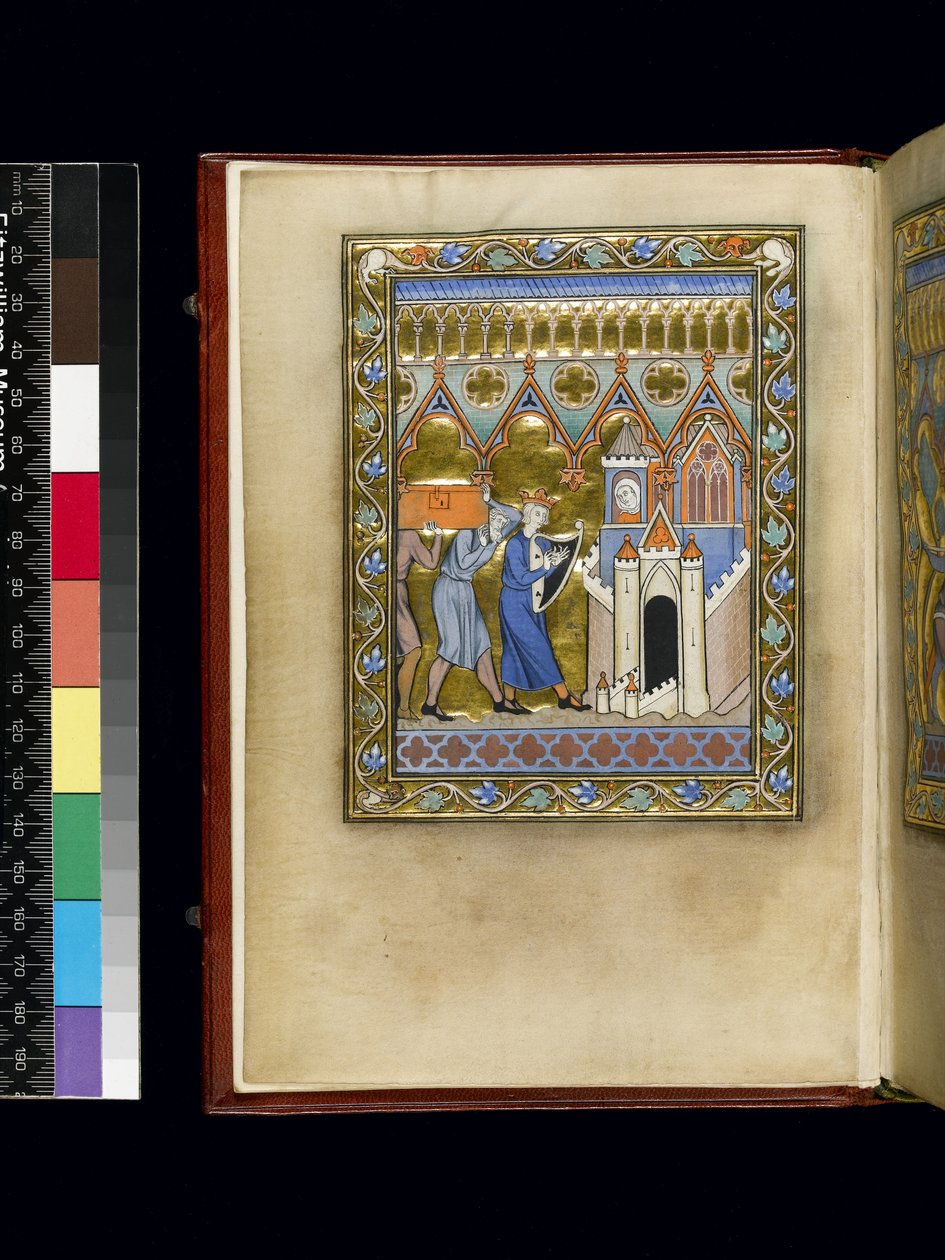 Fitzwilliam Museum
mm 10 20 30 40 50 60 70 80 90 100 110 120 130 140 150 160 170 180 190